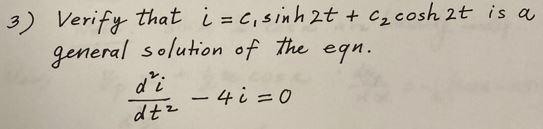 3) Verify that i = c₁ sinh 2t + c₂ cosh 2t is a
general solution of the eqn.
d²i/dt² - 4i = 0